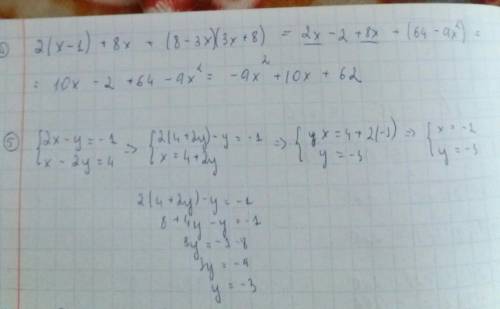 2(x-1) + 8x + (8-3x)(3x+8) = 2x - 2 + 8x + (64 - 9x² =
= 10x - 2 + 64 - 9x² = -9x² + 10x + 62
⑤ { 2x - y = -1 ⇒ { 2(4+2y) - y = -1 ⇒ { y, x = 4 + 2(-3) ⇒ { x = -2
x - 2y = 4 x = 4+2y y = -3 y = -3
2(4+2y) - y = -1
8 + 4y - y = -1
3y = -1 - 8
3y = -9
y = -3